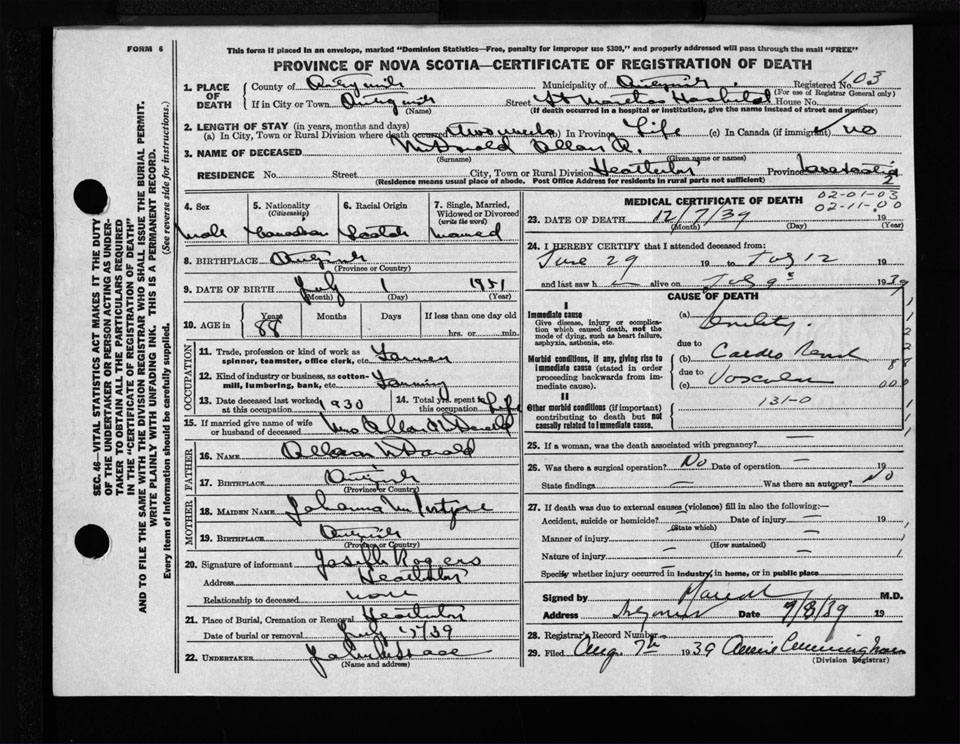 FORM 6
This form if placed in an envelope, marked "Dominion Statistics—Free, penalty for improper use $300," and properly addressed will pass through the mail "FREE"
PROVINCE OF NOVA SCOTIA—CERTIFICATE OF REGISTRATION OF DEATH
SEC. 46—VITAL STATISTICS ACT MAKES IT THE DUTY
OF THE UNDERTAKER OR PERSON ACTING AS UNDER-
TAKER TO OBTAIN ALL THE PARTICULARS REQUIRED
IN THE "CERTIFICATE OF REGISTRATION OF DEATH"
AND TO FILE THE SAME WITH THE DIVISION REGISTRAR WHO SHALL ISSUE THE BURIAL PERMIT.
WRITE PLAINLY WITH UNFADING INK. THIS IS A PERMANENT RECORD.
Every item of Information should be carefully supplied. (See reverse side for instructions.)
1. PLACE OF DEATH County of Municipality of Registered No. 103
(For use of Registrar General only)
If in City or Town Street St Martha Hospital House No.
(Name) (If death occurred in a hospital or institution, give the name instead of street and number)
2. LENGTH OF STAY (in years, months and days)
(a) In City, Town or Rural Division where death occurred two weeks (b) In Province Life (c) In Canada (if immigrant) no
3. NAME OF DECEASED McDonald Allan R.
(Surname) (Given name or names)
RESIDENCE No. Street City, Town or Rural Division Heatherton Province Nova Scotia
(Residence means usual place of abode. Post Office Address for residents in rural parts not sufficient) 2
4. Sex 5. Nationality (Citizenship) 6. Racial Origin 7. Single, Married, Widowed or Divorced (write the word)
Male Canadian Scotch Married
8. BIRTHPLACE
(Province or Country)
9. DATE OF BIRTH July 1 1851
(Month) (Day) (Year)
10. AGE in Years Months Days If less than one day old
88 hrs. or min.
OCCUPATION
11. Trade, profession or kind of work as spinner, teamster, office clerk, etc. Farmer
12. Kind of industry or business, as cotton-mill, lumbering, bank, etc. Farming
13. Date deceased last worked at this occupation 1930 14. Total yrs. spent in this occupation Life
15. If married give name of wife or husband of deceased Mrs Allan McDonald
FATHER
16. NAME Allan McDonald
17. BIRTHPLACE
(Province or Country)
MOTHER
18. MAIDEN NAME Johanna McIntyre
19. BIRTHPLACE
(Province or Country)
20. Signature of informant Joseph Rogers
Address Heatherton
Relationship to deceased none
21. Place of Burial, Cremation or Removal Heatherton
Date of burial or removal July 39
22. UNDERTAKER
(Name and address)
MEDICAL CERTIFICATE OF DEATH 02-01-03
02-11-00
23. DATE OF DEATH 12/7/39 19
(Month) (Day) (Year)
24. I HEREBY CERTIFY that I attended deceased from:
June 29 19 to July 12 19
and last saw h alive on July 9 1939
CAUSE OF DEATH
I
Immediate cause
Give disease, injury or complication which caused death, not the mode of dying, such as heart failure, asphyxia, asthenia, etc.
(a) Senility.
due to
Morbid conditions, if any, giving rise to immediate cause (stated in order proceeding backwards from immediate cause).
(b) Cardio Renal
due to
(c) Vascular
II
Other morbid conditions (if important) contributing to death but not causally related to immediate cause.
131-0
25. If a woman, was the death associated with pregnancy? —
26. Was there a surgical operation? No Date of operation — 19
State findings — Was there an autopsy? No
27. If death was due to external causes (violence) fill in also the following:—
Accident, suicide or homicide? — Date of injury — 19
(State which)
Manner of injury —
(How sustained)
Nature of injury —
Specify whether injury occurred in industry, in home, or in public place
Signed by M.D.
Address Date 9/8/39 19
28. Registrar's Record Number
29. Filed Aug. 7th 1939 Annie Cunningham
(Division Registrar)